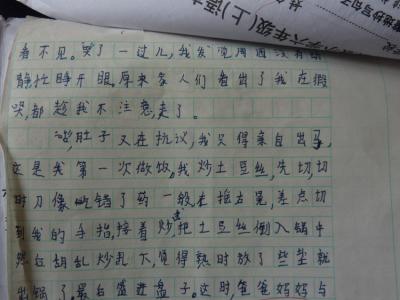 六年级(上)语
看不见。哭了一过儿,我发现周围没有动
静,忙睁开眼。原来家人们看出了我在假
哭,都趁我不注意走了。
肚子又在抗议,我只得亲自出马,
这是我第一次做饭,我炒土豆丝,先切,切
时刀像吃错了药一般,左摇右晃,差点切
到我的手指,接着炒,把土豆丝倒入锅中
然后胡乱炒几下,觉得熟时放了些盐就
出锅了。最后盛进盘子。这时,爸爸妈妈与